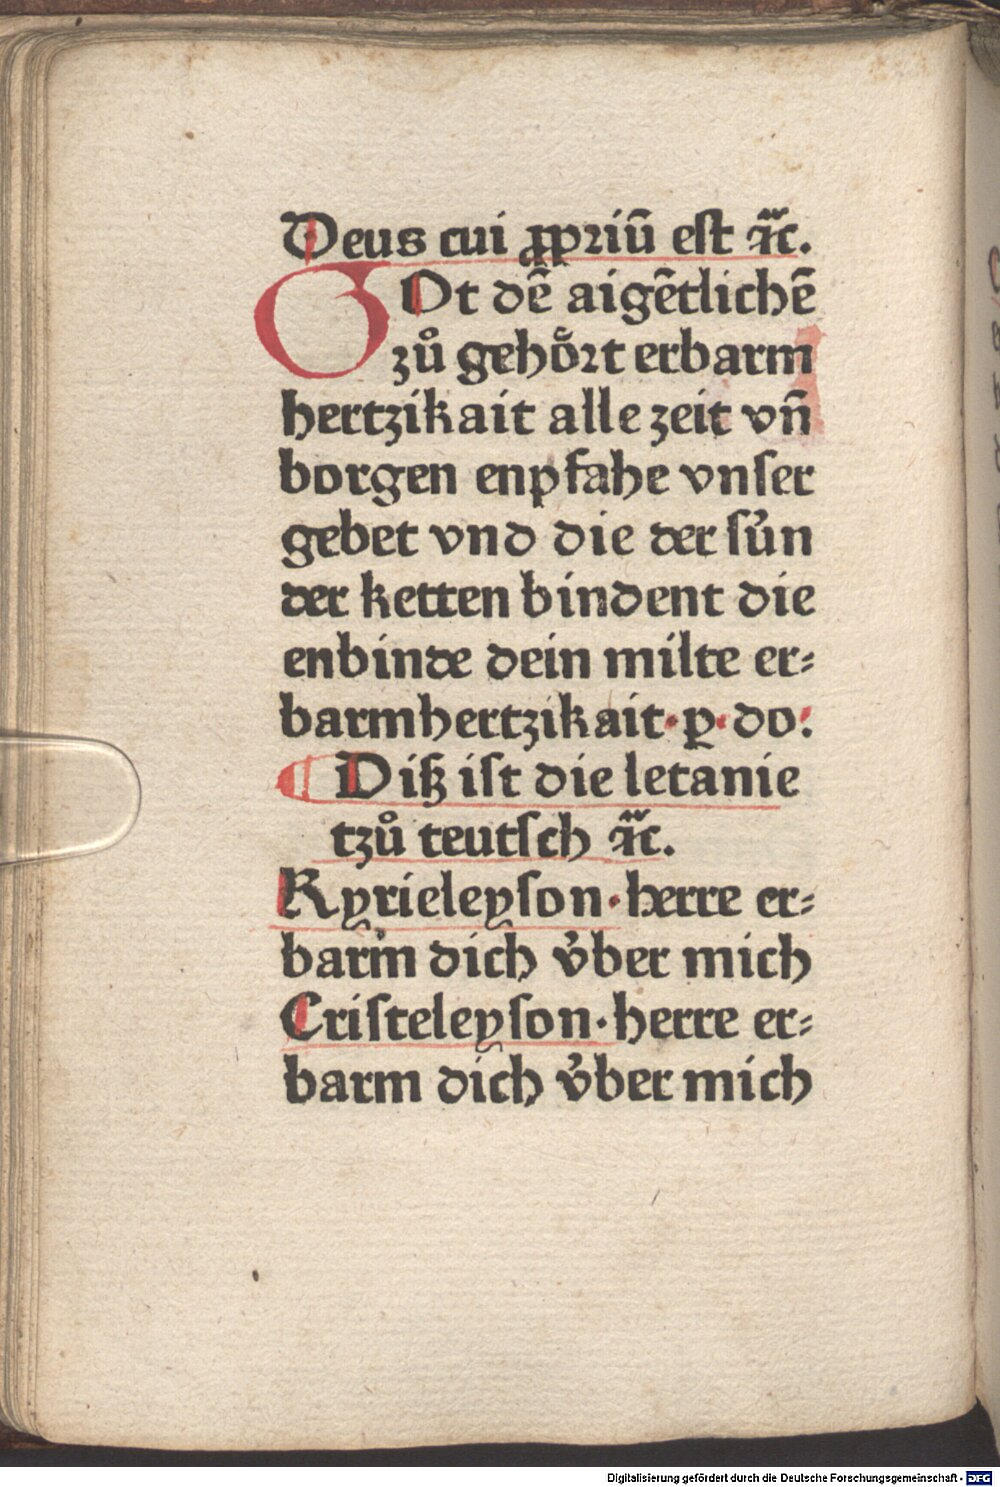 Deus cui ꝓpriū est ⁊c̃.
GOt dē aigētlichē
zů gehoͤrt erbarm
hertzikait alle zeit vn̄
borgen enpfahe vnſer
gebet vnd die der ſu̓n
der ketten bindent die
enbinde dein milte er⸗
barmhertzikait·ꝑ·do:
Diß iſt die letanie
tzů teutſch ⁊c̃.
Kyrieleyſon·herre er⸗
barm dich v̓ber mich
Criſteleyſon·herre er⸗
barm dich v̓ber mich
Digitalisierung gefördert durch die Deutsche Forschungsgemeinschaft - DFG